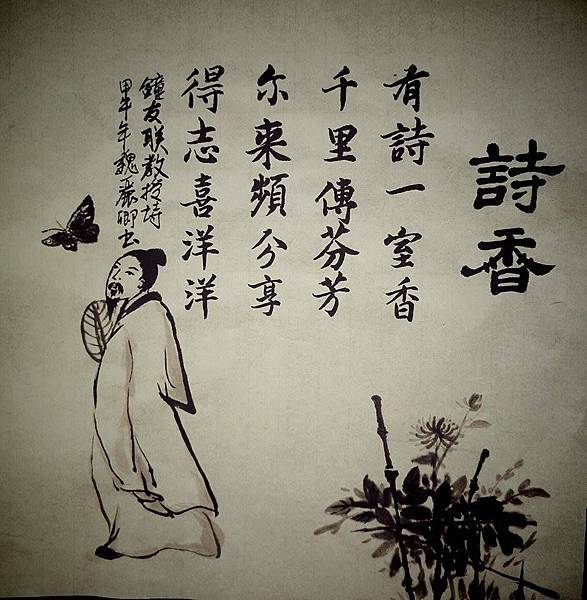 詩香
有詩一室香
千里傳芬芳
尔来頻分享
得志喜洋洋
鐘友联教授詩
甲午年魏麗卿书